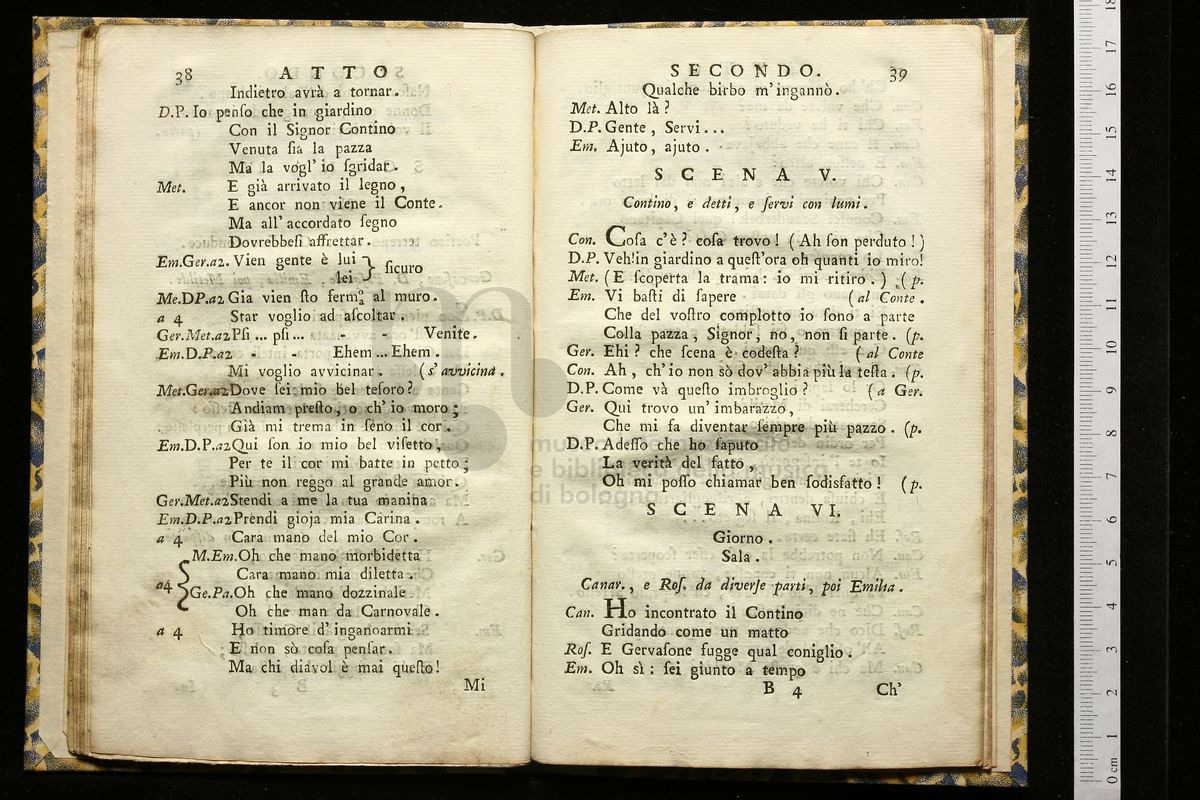 38 ATTO
Indietro avrà a tornar.
D.P. Io penſo che in giardino
Con il Signor Contino
Venuta ſia la pazza
Ma la vogl' io ſgridar.
Met. E già arrivato il legno,
E ancor non viene il Conte.
Ma all' accordato ſegno
Dovrebbeſi affrettar.
Em.Ger.a2. Vien gente è lui } ſicuro
lei
Me.DP.a2 Gia vien ſto ferma/o al muro.
a 4 Star voglio ad aſcoltar.
Ger.Met.a2 Pſi ... pſi ... - - Venite.
Em.D.P.a2 - - Ehem ... Ehem.
Mi voglio avvicinar. (s' avvicina.
Met.Ger.a2 Dove ſei mio bel teſoro?
Andiam preſto, o ch' io moro;
Già mi trema in ſeno il cor.
Em.D.P.a2 Qui ſon io mio bel viſetto,
Per te il cor mi batte in petto;
Più non reggo al grande amor.
Ger.Met.a2 Stendi a me la tua manina
Em.D.P.a2 Prendi gioja mia Carina.
a 4 Cara mano del mio Cor.
M.Em. Oh che mano morbidetta
Cara mano mia diletta.
a4 { Ge.Pa. Oh che mano dozzinale
Oh che man da Carnovale.
a 4 Ho timore d' inganoarmi
E non sò coſa penſar.
Ma chi diavol è mai queſto!
Mi
SECONDO. 39
Qualche birbo m' ingannò.
Met. Alto là?
D.P. Gente, Servi...
Em. Ajuto, ajuto.
SCENA V.
Contino, e detti, e ſervi con lumi.
Con. Coſa c'è? coſa trovo! (Ah ſon perduto!)
D.P. Veh!in giardino a queſt'ora oh quanti io miro!
Met. (E ſcoperta la trama: io mi ritiro.) (p.
Em. Vi baſti di ſapere (al Conte.
Che del voſtro complotto io ſono a parte
Colla pazza, Signor, no, non ſi parte. (p.
Ger. Ehi? che ſcena è codeſta? (al Conte
Con. Ah, ch' io non sò dov' abbia più la teſta. (p.
D.P. Come và queſto imbroglio? (a Ger.
Ger. Qui trovo un' imbarazzo,
Che mi fa diventar ſempre più pazzo. (p.
D.P. Adeſſo che ho ſaputo
La verità del fatto,
Oh mi poſſo chiamar ben ſodisfatto! (p.
SCENA VI.
Giorno.
Sala.
Canar., e Roſ. da diverſe parti, poi Emilia.
Can. Ho incontrato il Contino
Gridando come un matto
Roſ. E Gervaſone fugge qual coniglio.
Em. Oh sì: ſei giunto a tempo
B 4 Ch'
museo internazionale
e biblioteca della musica
di bologna
0 cm 1 2 3 4 5 6 7 8 9 10 11 12 13 14 15 16 17 18